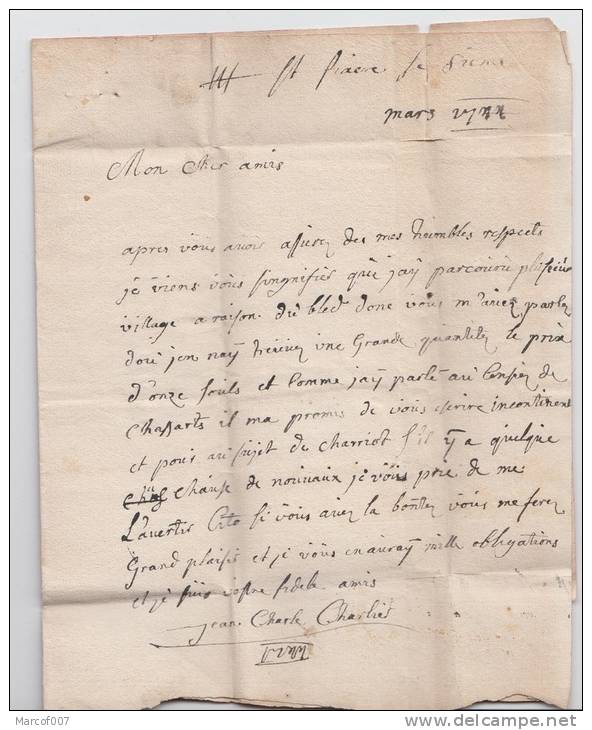 mars
Mon Cher amis
apres vous avoir assurez des mes heumbles respects
je viens vous singnifier que jay parcourû plusieur
village a raison du bled donc vous m'avez parlez
dont jen nay treuvez une Grande quantitez le prix
d'onze souls et comme jay parlé au Censier de
Chassarts il ma promis de vous escrire incontinent
et pour au sujet de Charriot s'il y a quelque
Chause de nouvaux je vous prie de me
L'avertir Cito si vous avez la bontez vous me ferez
Grand plaisir et je vous en auray mille obligations
et je suis vostre fidele amis
Jean Charle Charlier
Marcof007
delcampe.net